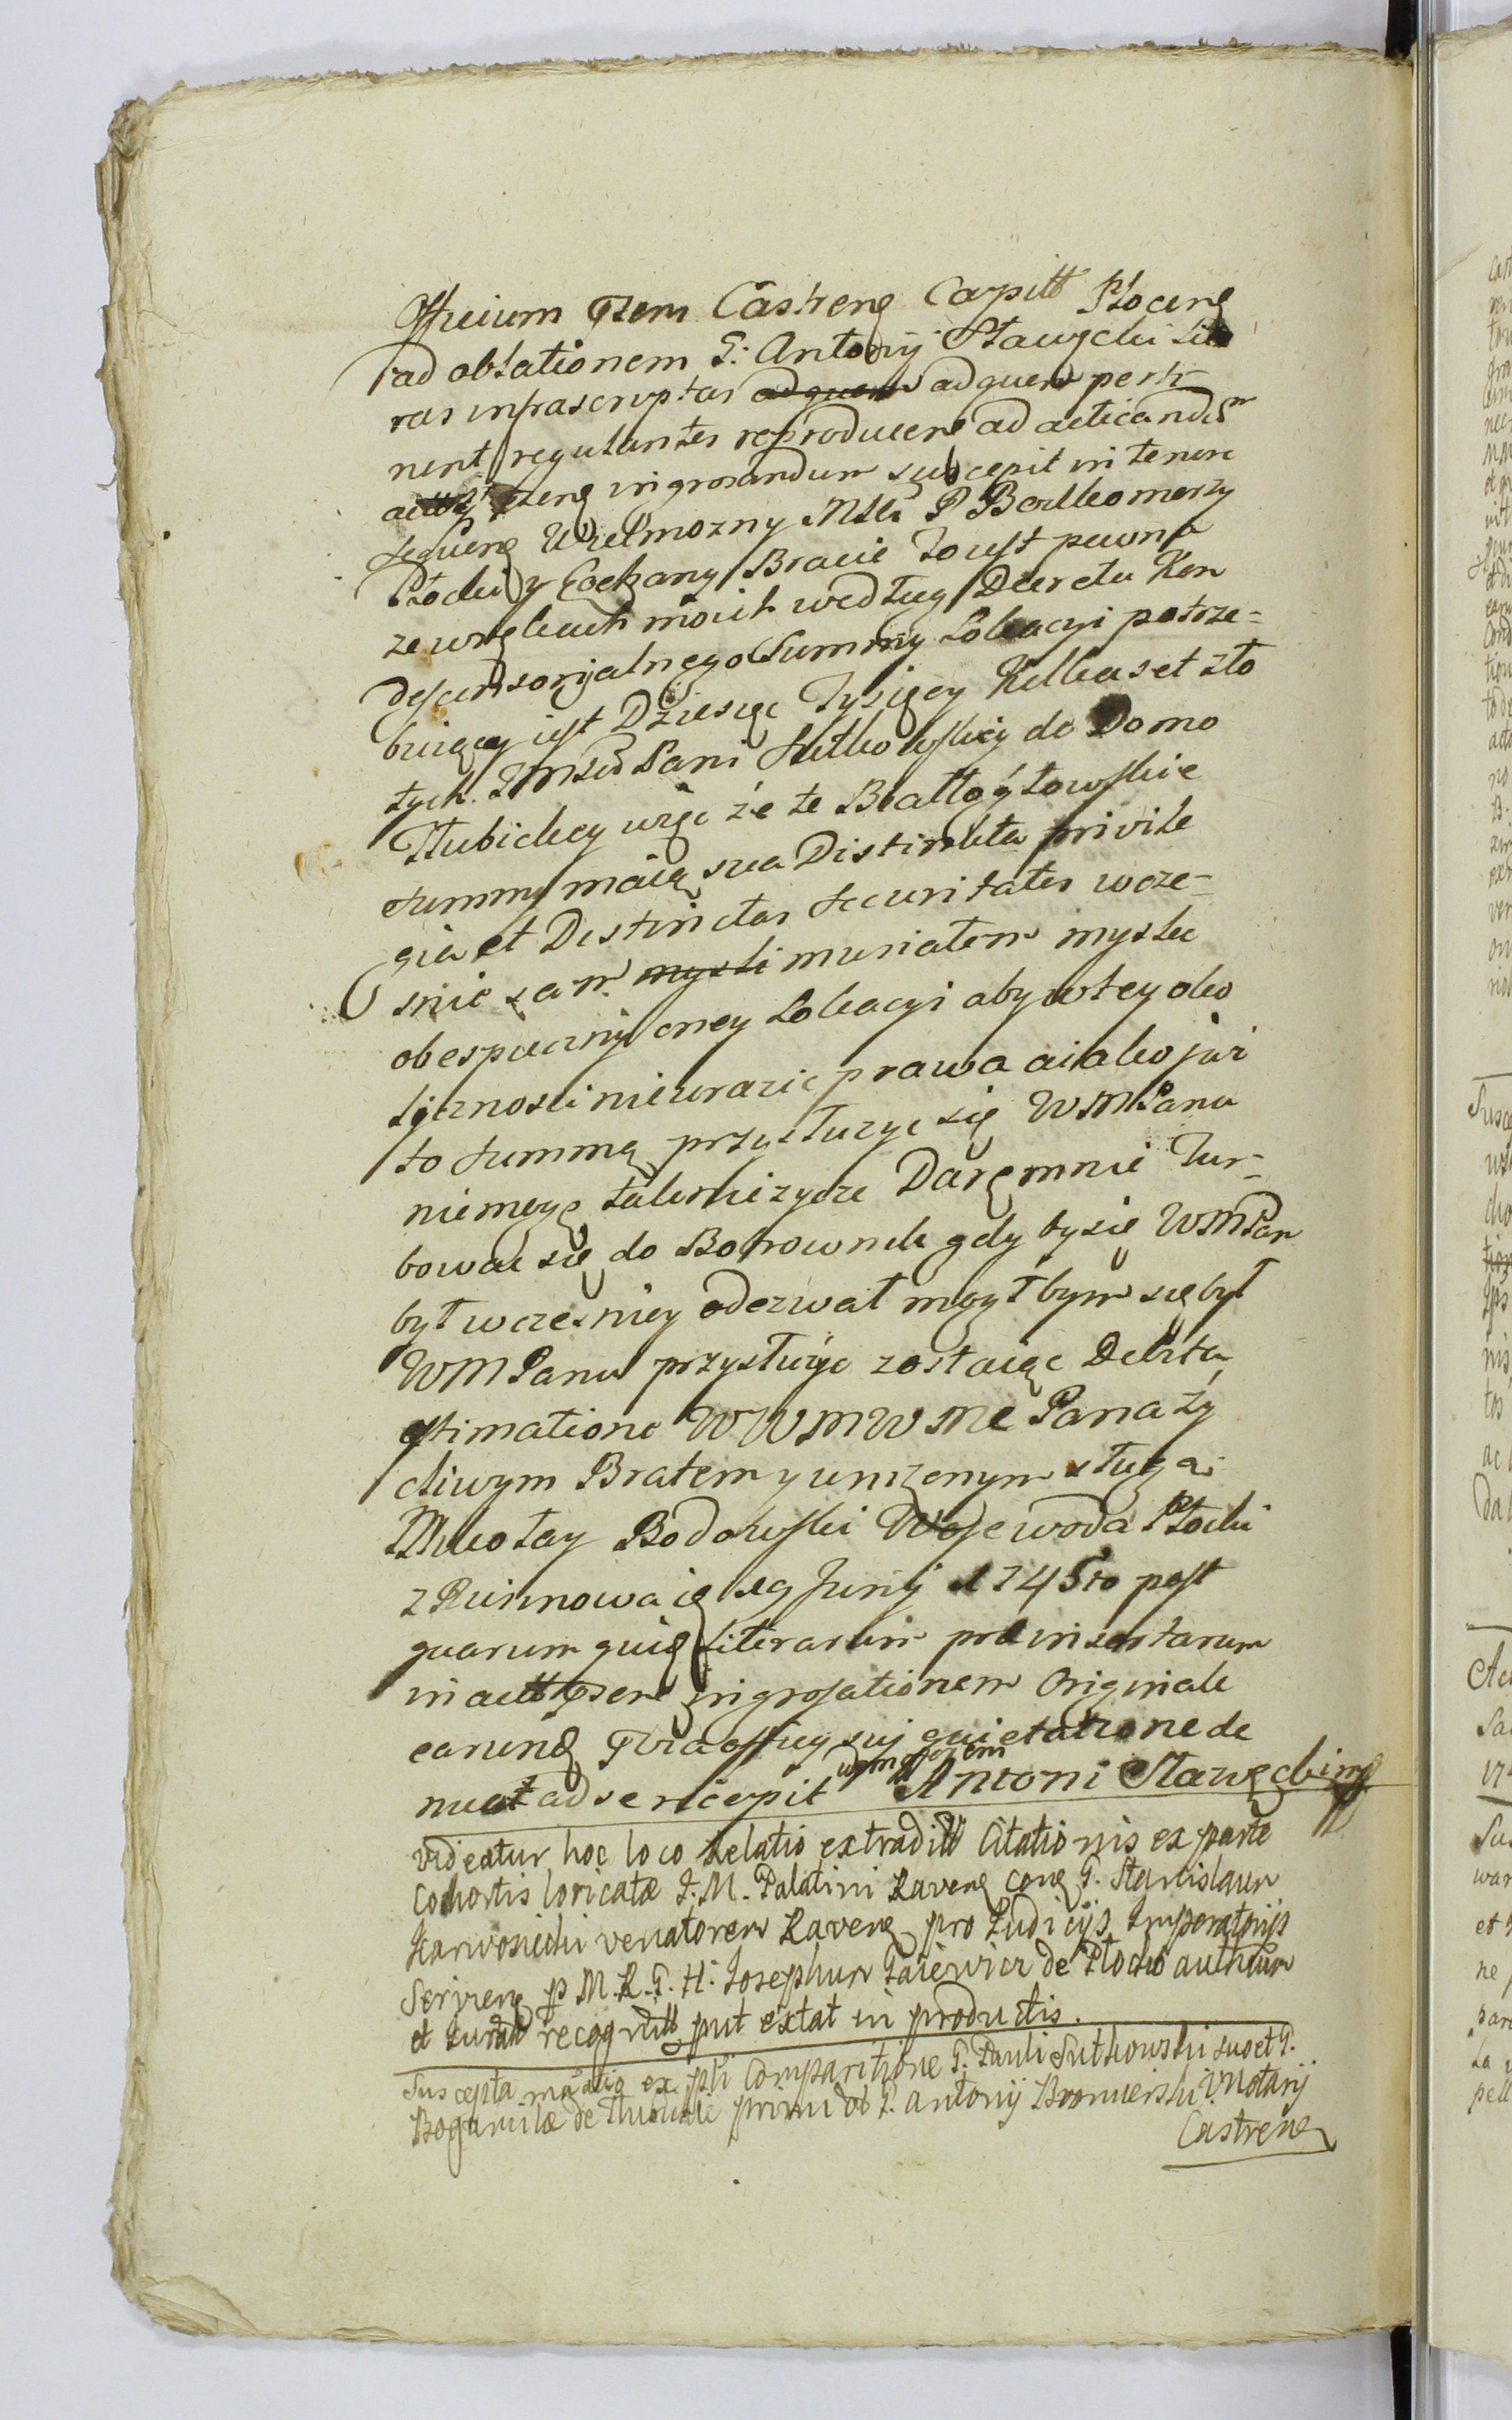 Officium Psens Castrens Capitt Plocens
ad oblationem G. Antonij Stawęcki Litte
ras infrascriptas ad quem ad quem perti
nent regulantes reproducens ad acticandum
actisq psens ingrosandum suscepit in tenore
sequens Wielmozny Mści P Bartłomierzy
Płocki y Kochany Bracie To iest pewna
ze względach moich według Decretu Kon
descensorijalnego Summy Lokacyi potrze-
buiącey iest Dziesięc Tysięcy Kilkaset zło
tych Imści Pani Sutkowskiey do Domo
Hlubickey więc że te Białłogłowskie
summy maią swa Distinkta privile
gia et Distinctas securitates wcze-
snie sam mysli musiałem myslec
obespieczny oney Lokacyi aby w tey oko
licznosci nie urazic prawa a iako już
to summą przysłuzyc się WMPanu
niemogę tak nie zycze Daręmnie Tur-
bowac się do Borownik gdy by się WMPan
był wczesniey odezwał mogł bym się był
WMPanu przysłużyc zostaiąc Debita
estimatione WWMWMC Pana ży
cliwym Bratem y unizonym sługą
Mikołay Podowski Woiewoda Płocki
z Rusinowa ię 19 Junij 1745to post
quarum quid Literarum præinsertarum
in actt psens ingrosationem Originale
earund Idem offerens officij sui quietatione de
nuo ad se recepit Antoni Stawęcki mp
Videatur hoc loco Relatio extraditt Citationis ex parte
Cohortis loricatæ I. M. Palatini Ravens cons G. Stanislaum
Karwosiecki venatorem Ravens pro Iudicijs Imperatorijs
Serviens p M. R. G. H. Iosephum Gaiewicz de Plocko authum
et Iuratt recognitt put extat in productis.
Suscepta mãatio ex pti Comparitione G. Pauli Sutkowski suo et G.
Bogumilæ de primi ob G. Antonij Bromierski V. Notarij
Castrens